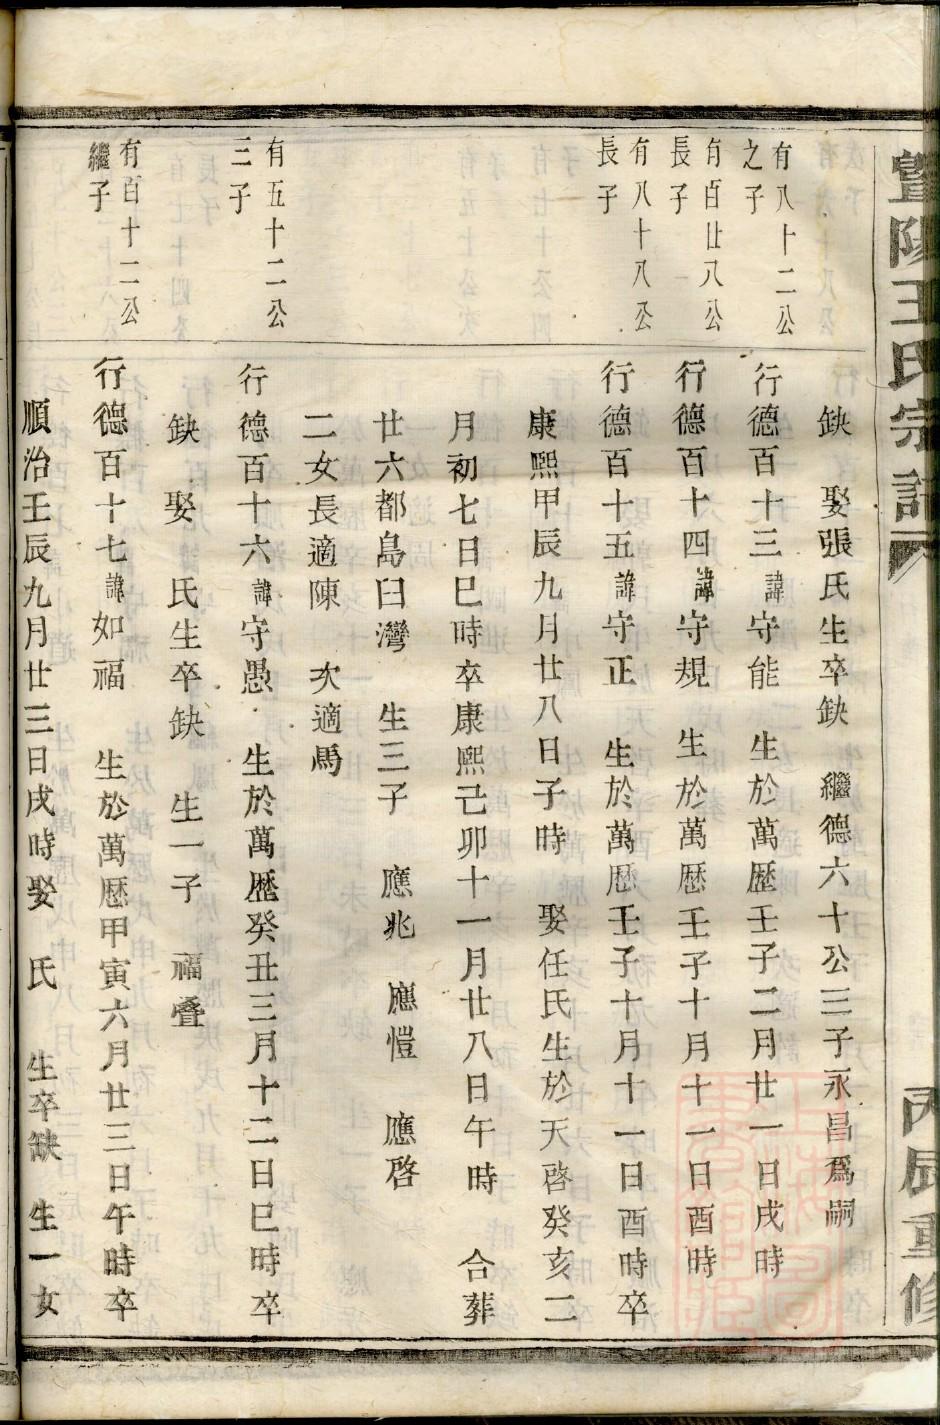 暨陽王氏宗譜
丙辰重修
缺　娶張氏生卒缺　繼德六十公三子永昌爲嗣
有八十二公
之子
行德百十三諱守能　生於萬歷壬子二月廿一日戌時
有百廿八公
長子
行德百十四諱守規　生於萬歷壬子十月十一日酉時
有八十八公
長子
行德百十五諱守正　生於萬歷壬子十月十一日酉時卒
康熙甲辰九月廿八日子時　娶任氏生於天啓癸亥二
月初七日巳時卒康熙己卯十一月廿八日午時　合葬
廿六都島臼灣　生三子　應兆　應愷　應啓
二女長適陳　次適馬
有五十二公
三子
行德百十六諱守愚　生於萬歷癸丑三月十二日巳時卒
缺　娶　氏生卒缺　生一子　福疊
有百十二公
繼子
行德百十七諱如福　生於萬歷甲寅六月廿三日午時卒
順治壬辰九月廿三日戌時娶　氏　生卒缺　生一女